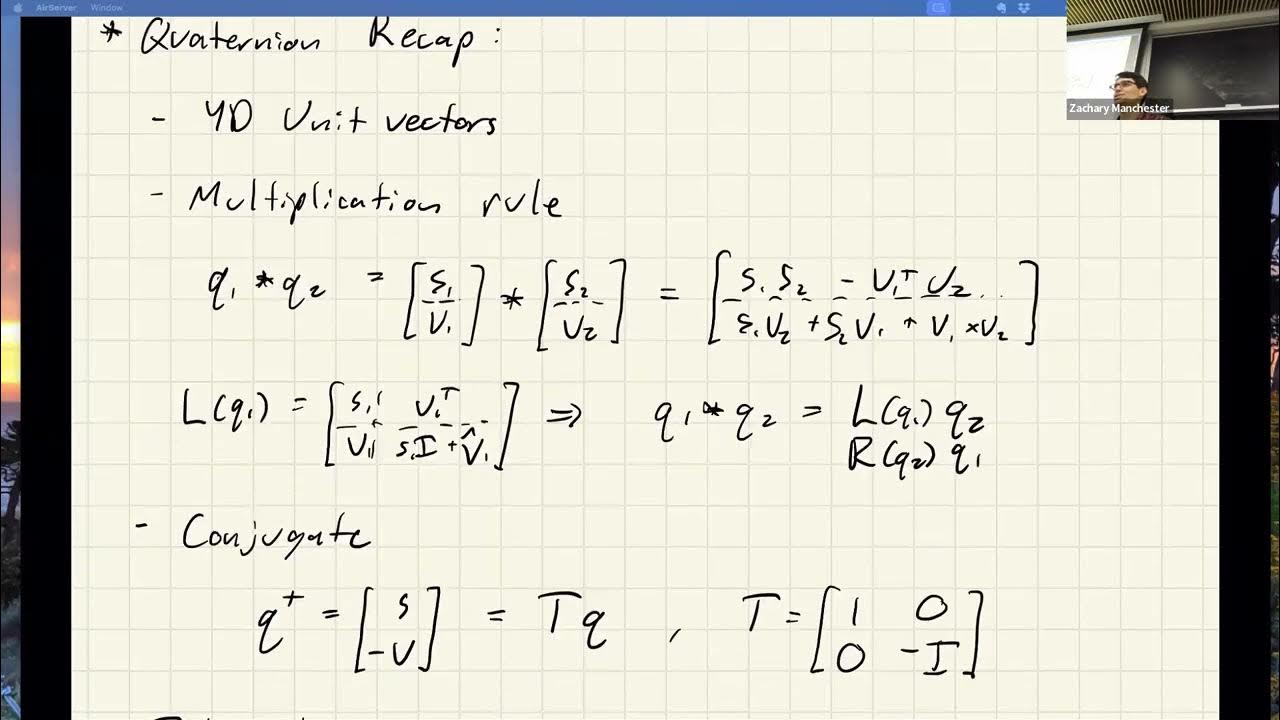 AirServer Window
* Quaternion Recap:
Zachary Manchester
- 4D Unit vectors
- Multiplication rule
q₁ * q₂ = [s₁ / v₁] * [s₂ / v₂] = [s₁ s₂ - v₁ᵀ v₂ / s₁ v₂ + s₂ v₁ + v₁ × v₂]
L(q₁) = [s₁ v₁ᵀ / v₁ s₁I + v̂₁] ⇒ q₁ * q₂ = L(q₁) q₂
R(q₂) q₁
- Conjugate
q⁺ = [s / -v] = Tq , T = [1 0 / 0 -I]